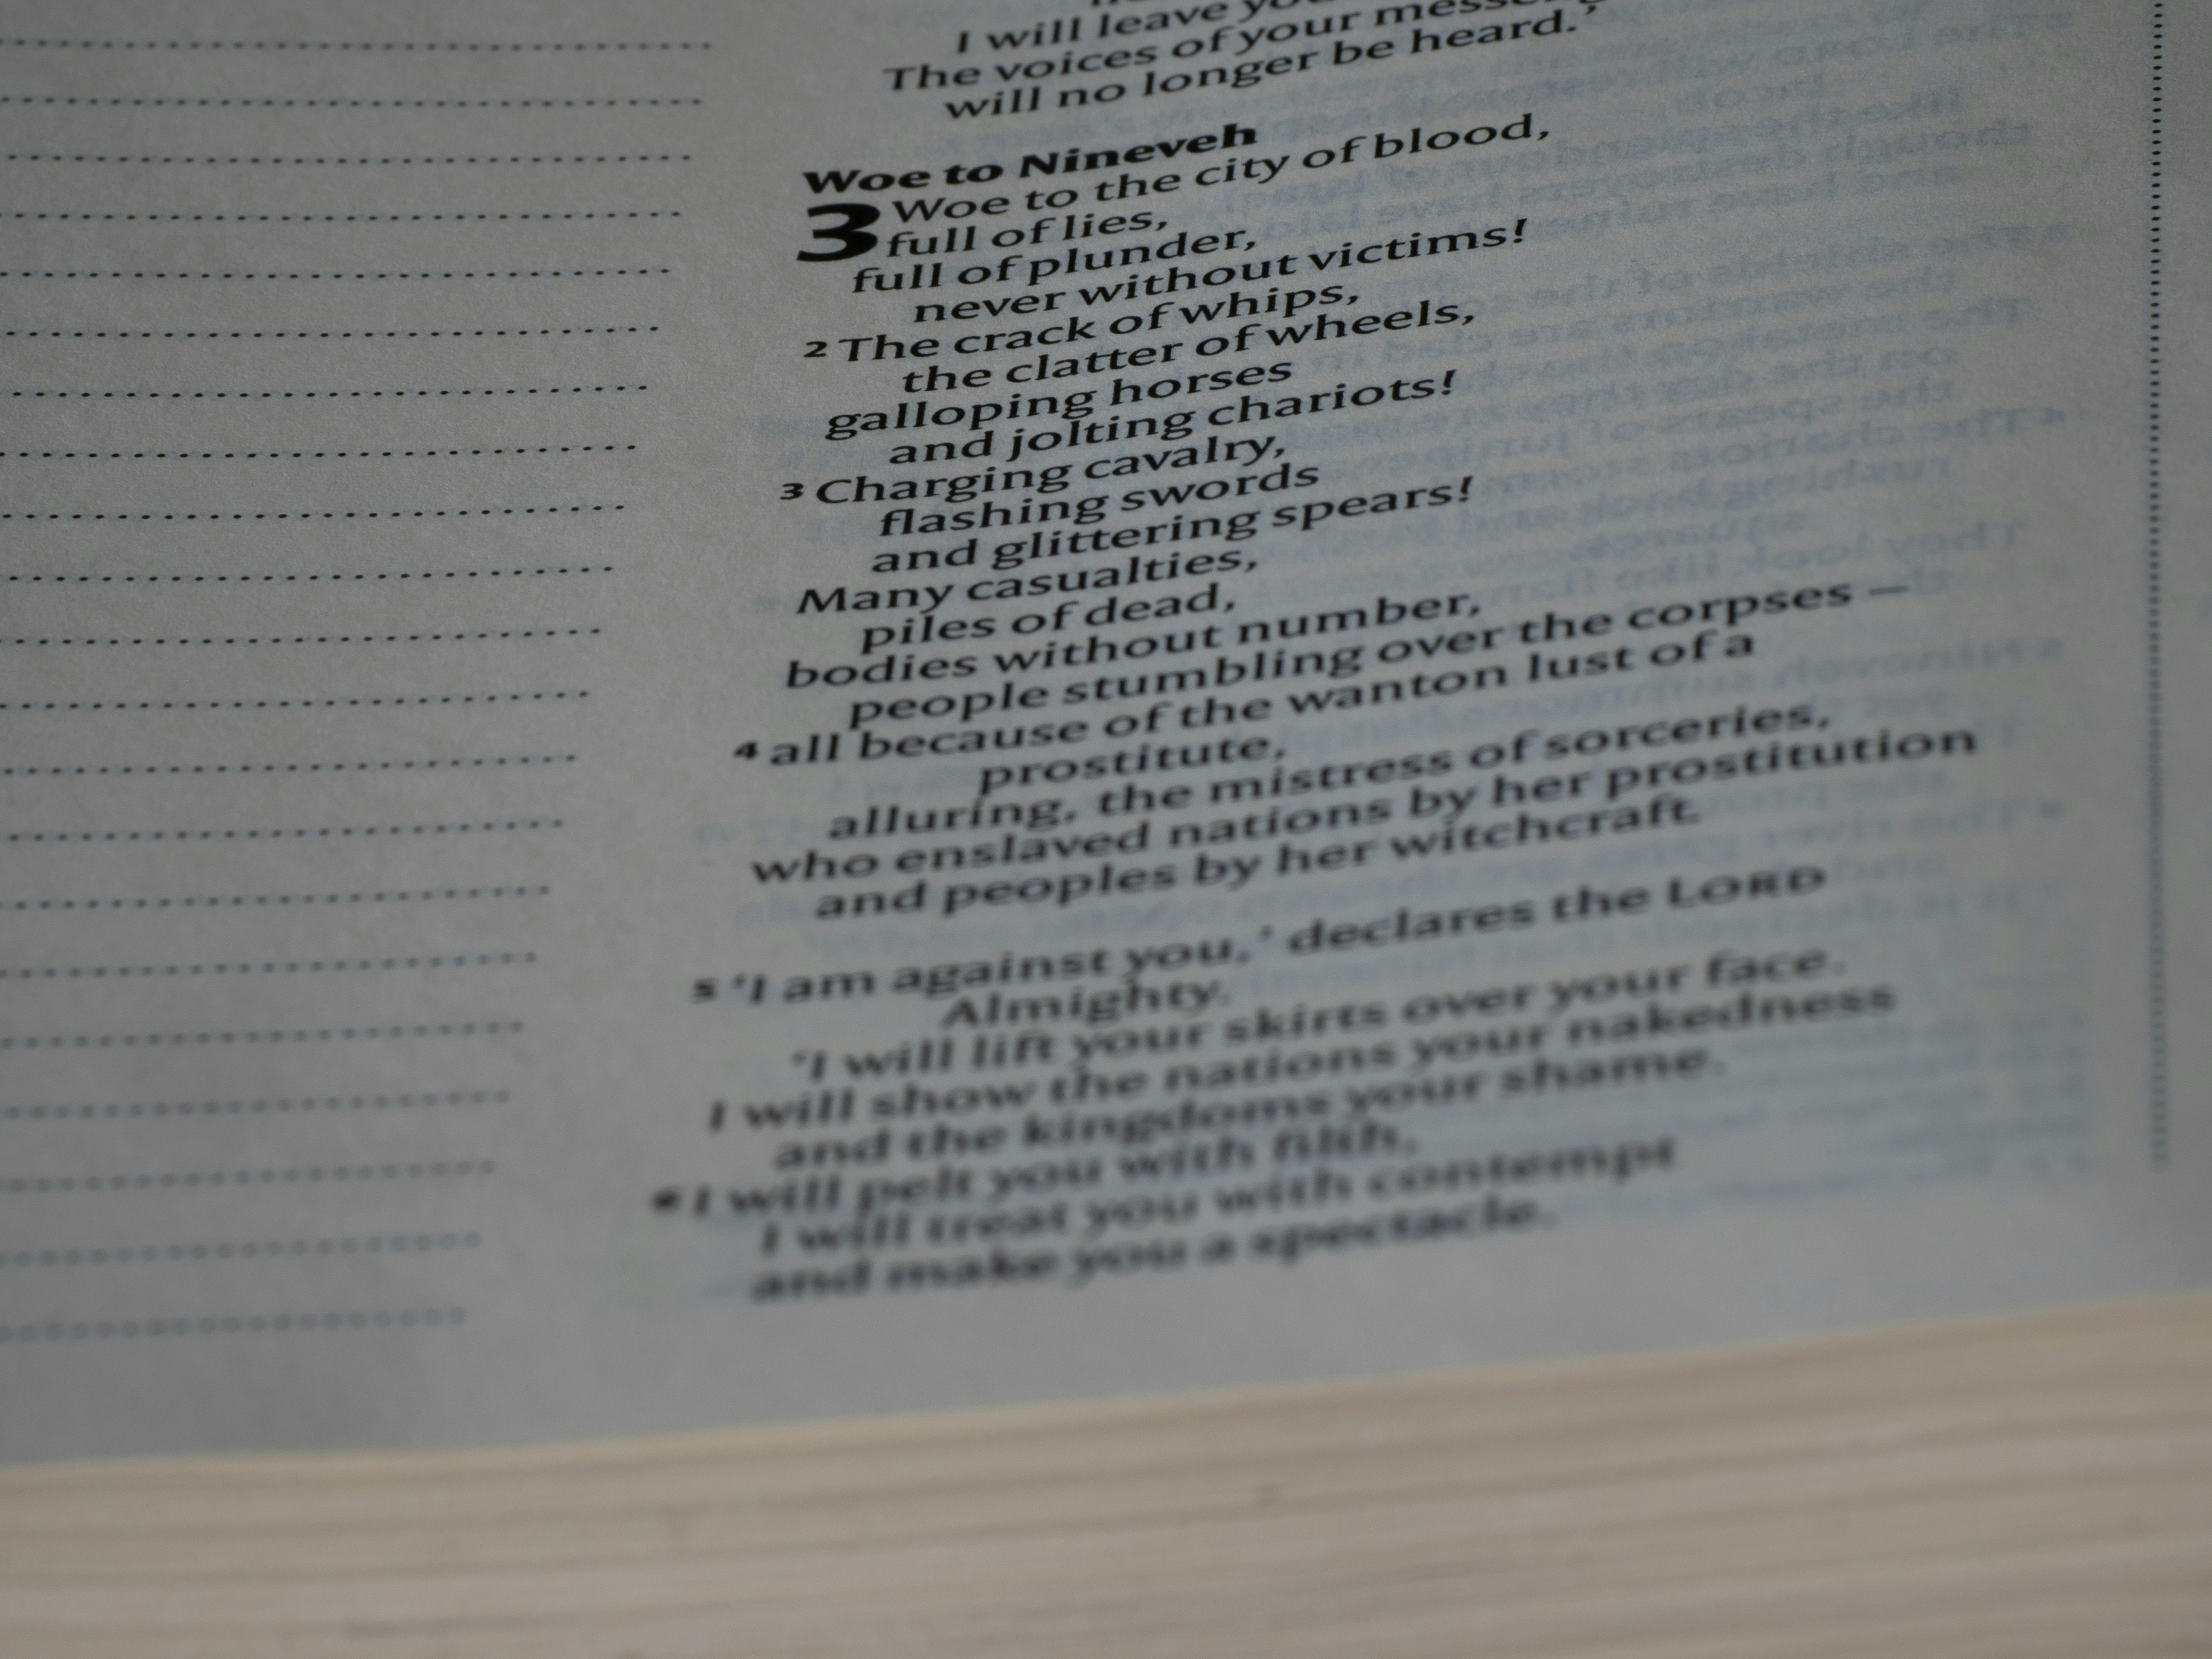 I will leave
The voices of your
will no longer be heard.’
Woe to Nineveh
3 Woe to the city of blood,
full of lies,
full of plunder,
never without victims!
2 The crack of whips,
the clatter of wheels,
galloping horses
and jolting chariots!
3 Charging cavalry,
flashing swords
and glittering spears!
Many casualties,
piles of dead,
bodies without number,
people stumbling over the corpses –
4 all because of the wanton lust of a
prostitute,
alluring, the mistress of sorceries,
who enslaved nations by her prostitution
and peoples by her witchcraft.
5 ‘I am against you,’ declares the LORD
Almighty.
‘I will lift your skirts over your face.
I will show the nations your nakedness
and the kingdoms your shame.
6 I will pelt you with filth,
I will treat you with contempt
and make you a spectacle.